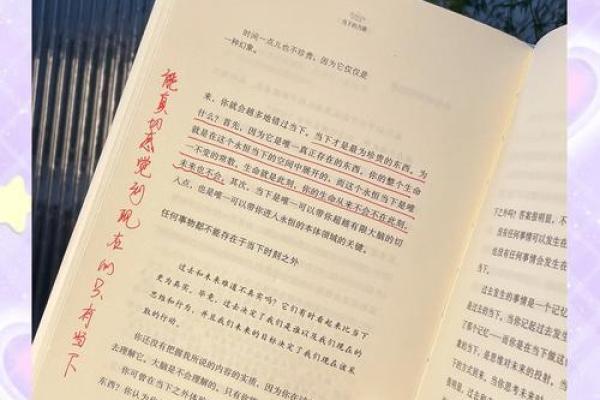 当下的力量
时间一点儿也不珍贵，因为它仅仅是
一种幻象。
来，你就会越多地错过当下，当下才是最为珍贵的东西。为
什么？首先，因为它是唯一真正存在的东西。你的整个生命
就是在这个永恒当下的空间中展开的，而这个永恒当下是唯
一不变的常数。生命就是此刻，你的生命从来不会不在此刻，
未来也不会。其次，当下是唯一可以带你超越有限大脑的切
入点，也是唯一可以带你进入永恒的本体领域的关键。
任何事物都不能存在于当下时刻之外
过去和未来难道不真实吗？它们有时看起来比当下
更为真实。毕竟，过去决定了我们是谁以及我们现在的
思维和行为，并且我们未来的目标决定了我们现在采
取的行动。
你还没有把握我所说的内容的实质，因为你在试
去理解它。大脑是不会理解的，只有你
你可曾在当下之外体验
东西？你认为
能真切感觉到现在的只有当下
下之外吗？答案很明显，不
没有任何事情可以发生在
也没有任何事情会发生在
当下。
过去发生的事情是一个记忆
是过去的当下。当你记起过去发生
了那个记忆——而你是在当下做这
的，是思想对未来的投射。当
下的方式到来。当你思考未来时